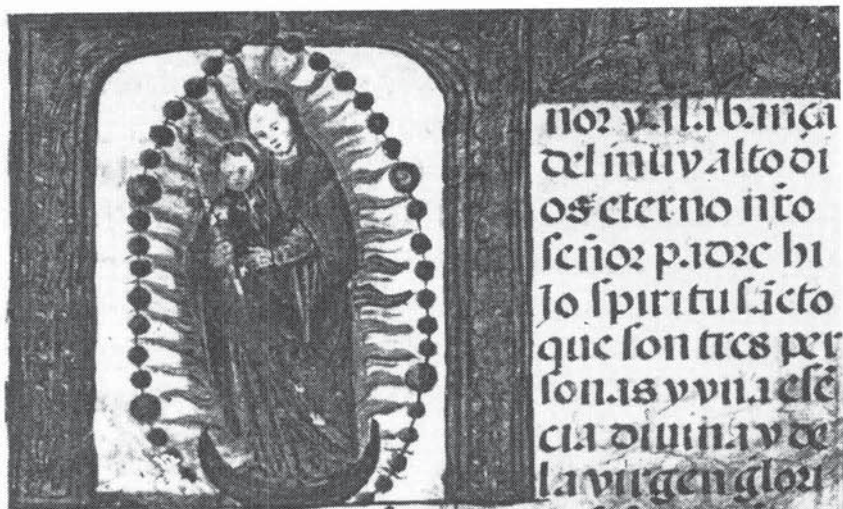 nor y alabança
del muy alto di
os eterno nr̃o
señor padre hi
jo spiritu sãcto
que son tres per
sonas y vna esẽ
cia diuina y de
la virgen glori